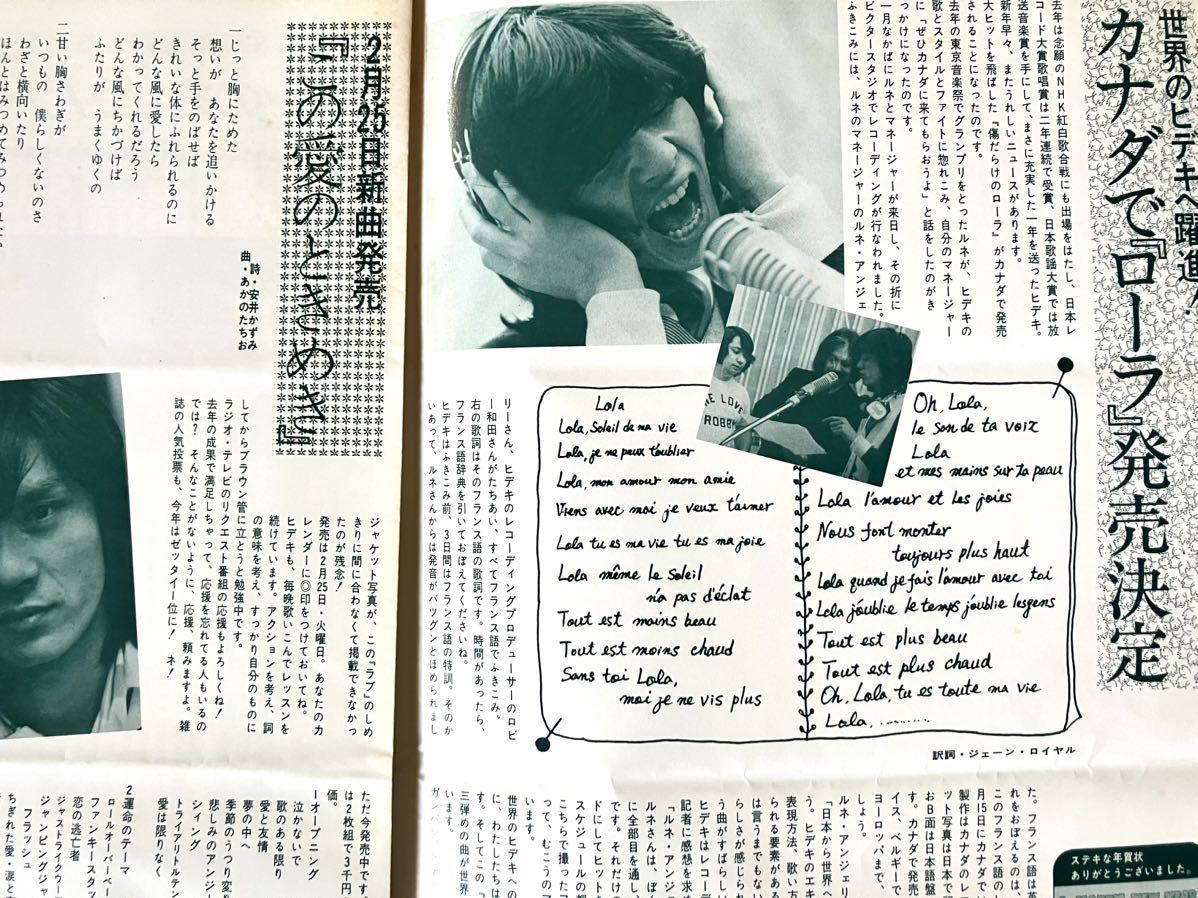 世界のヒデキへ躍進!
カナダで『ローラ』発売決定
去年は念願のNHK紅白歌合戦にも出場をはたし、日本レ
コード大賞歌唱賞は二年連続で受賞、日本歌謡大賞では放
送音楽賞を手にして、まさに充実した一年を送ったヒデキ。
新年早々、またうれしいニュースがあります。
大ヒットを飛ばした『傷だらけのローラ』がカナダで発売
されることになったのです。
去年の東京音楽祭でグランプリをとったルネが、ヒデキの
歌とスタイルとファイトに惚れこみ、自分のマネージャー
に「ぜひカナダに来てもらおうよ」と話をしたのがき
っかけになったのです。
一月なかばにルネとマネージャーが来日し、その折に
ビクタースタジオでレコーディングが行なわれました。
ふきこみには、ルネのマネージャーのルネ・アンジェ
リーさん、ヒデキのレコーディングプロデューサーのロビ
ー和田さんがたちあい、すべてフランス語でふきこみ。
右の歌詞はそのフランス語の歌詞です。時間があったら、
フランス語辞典を引いておぼえてくださいね。
ヒデキはふきこみ前、3日間はフランス語の特訓。そのか
いあって、ルネさんからは発音がバツグンとほめられまし
た。フランス語は英
Lola
Lola, Soleil de ma vie
Lola, je ne peux t'oublier
Lola, mon amour mon amie
Viens avec moi je veux t'aimer
Lola tu es ma vie tu es ma joie
Lola même le soleil
n'a pas d'éclat
Tout est moins beau
Tout est moins chaud
Sans toi Lola,
moi je ne vis plus
Oh, Lola,
le son de ta voix
Lola
et mes mains sur ta peau
Lola l'amour et les joies
Nous font monter
toujours plus haut
Lola quand je fais l'amour avec toi
Lola j'oublie le temps j'oublie les gens
Tout est plus beau
Tout est plus chaud
Oh, Lola, tu es toute ma vie
Lola, ........
訳詞・ジェーン・ロイヤル
LOVE
ROBBY
れをおぼえるのは、
このフランス語のレ
月15日にカナダで
製作はカナダのレ
ット写真は日本で
おB面は日本語盤
す。カナダで発売
イス、ベルギーで
ヨーロッパまで、
しょう。
ルネ・アンジェリ
「日本から世界へ
う。ヒデキのエキ
表現方法、歌い方
られる要素がある
は言うまでもない
らしさが感じられ
う曲がすばらしい
ヒデキはレコーデ
記者に感想を求め
「ルネ・アンジ
ルネさんは、ぼく
に全部目を通し、
です。それだけの
ドにしてヒットさ
スケジュールの都
こちらで撮ったフ
って、むこうのマ
います。
世界のヒデキへの
に、わたしたちは
す。そしてこの「
三弾めの曲が世界
います。
ステキな年賀状
ありがとうございました。
2月25日新曲発売
『この愛のときめき』
詩・安井かずみ
曲・あかのたちお
一じっと胸にためた
想いが あなたを追いかける
そっと手をのばせば
きれいな体にふれられるのに
どんな風に愛したら
わかってくれるだろう
どんな風にちかづけば
ふたりが うまくゆくの
二甘い胸さわぎが
いつもの 僕らしくないのさ
わざと横向いたり
ジャケット写真が、この『ラブ』のしめ
きりに間に合わなくて掲載できなかっ
たのが残念!
発売は2月25日・火曜日。あなたのカ
レンダーに◎印をつけておいてね。
ヒデキも、毎晩歌いこんでレッスンを
続けています。アクションを考え、詞
の意味を考え、すっかり自分のものに
してからブラウン管に立とうと勉強中です。
ラジオ・テレビのリクエスト番組の応援もよろしくね!
去年の成果で満足しちゃって、応援を忘れてる人もいるの
では?そんなことがないように、応援、頼みますよ。雑
誌の人気投票も、今年はゼッタイ一位に! ネ!
ただ今発売中です
は2枚組で3千円の
価。
1オープニング
泣かないで
歌のある限り
愛と友情
夢の中へ
季節のうつり変り
悲しみのアンジー
シィング
トライアリトルテン
愛は限りなく
2運命のテーマ
ロールオーバーベー
ファンキースタッ
恋の逃亡者
ジャストライクアー
ジャンピングジャ
フラッシュ
ちぎれた愛・涙と